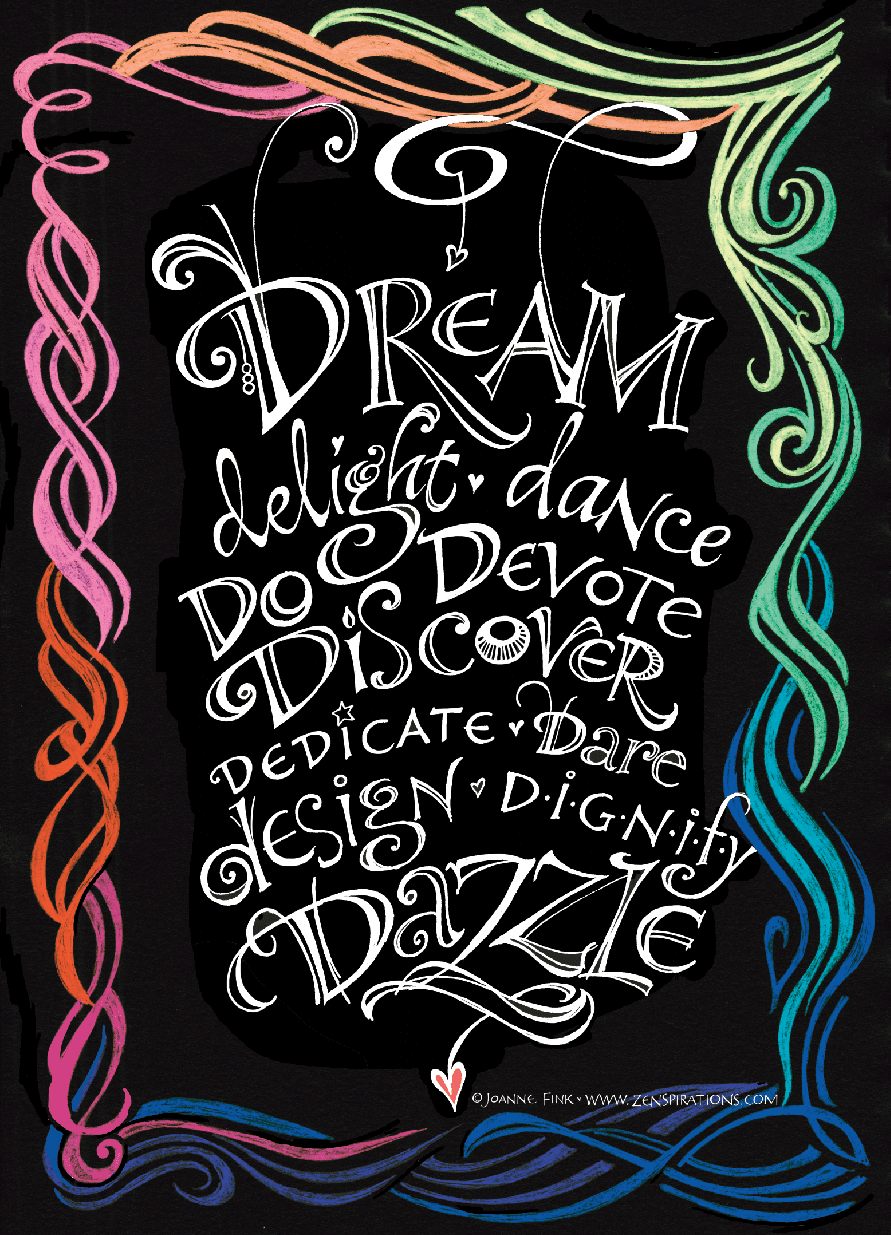 DREAM
delight · dance
DO DEVOTE
DiSCOVER
DEDiCATE · Dare
design · D·i·G·N·i·f·y
DaZZLE
© JOANNE FINK · WWW.ZENSPIRATIONS.COM